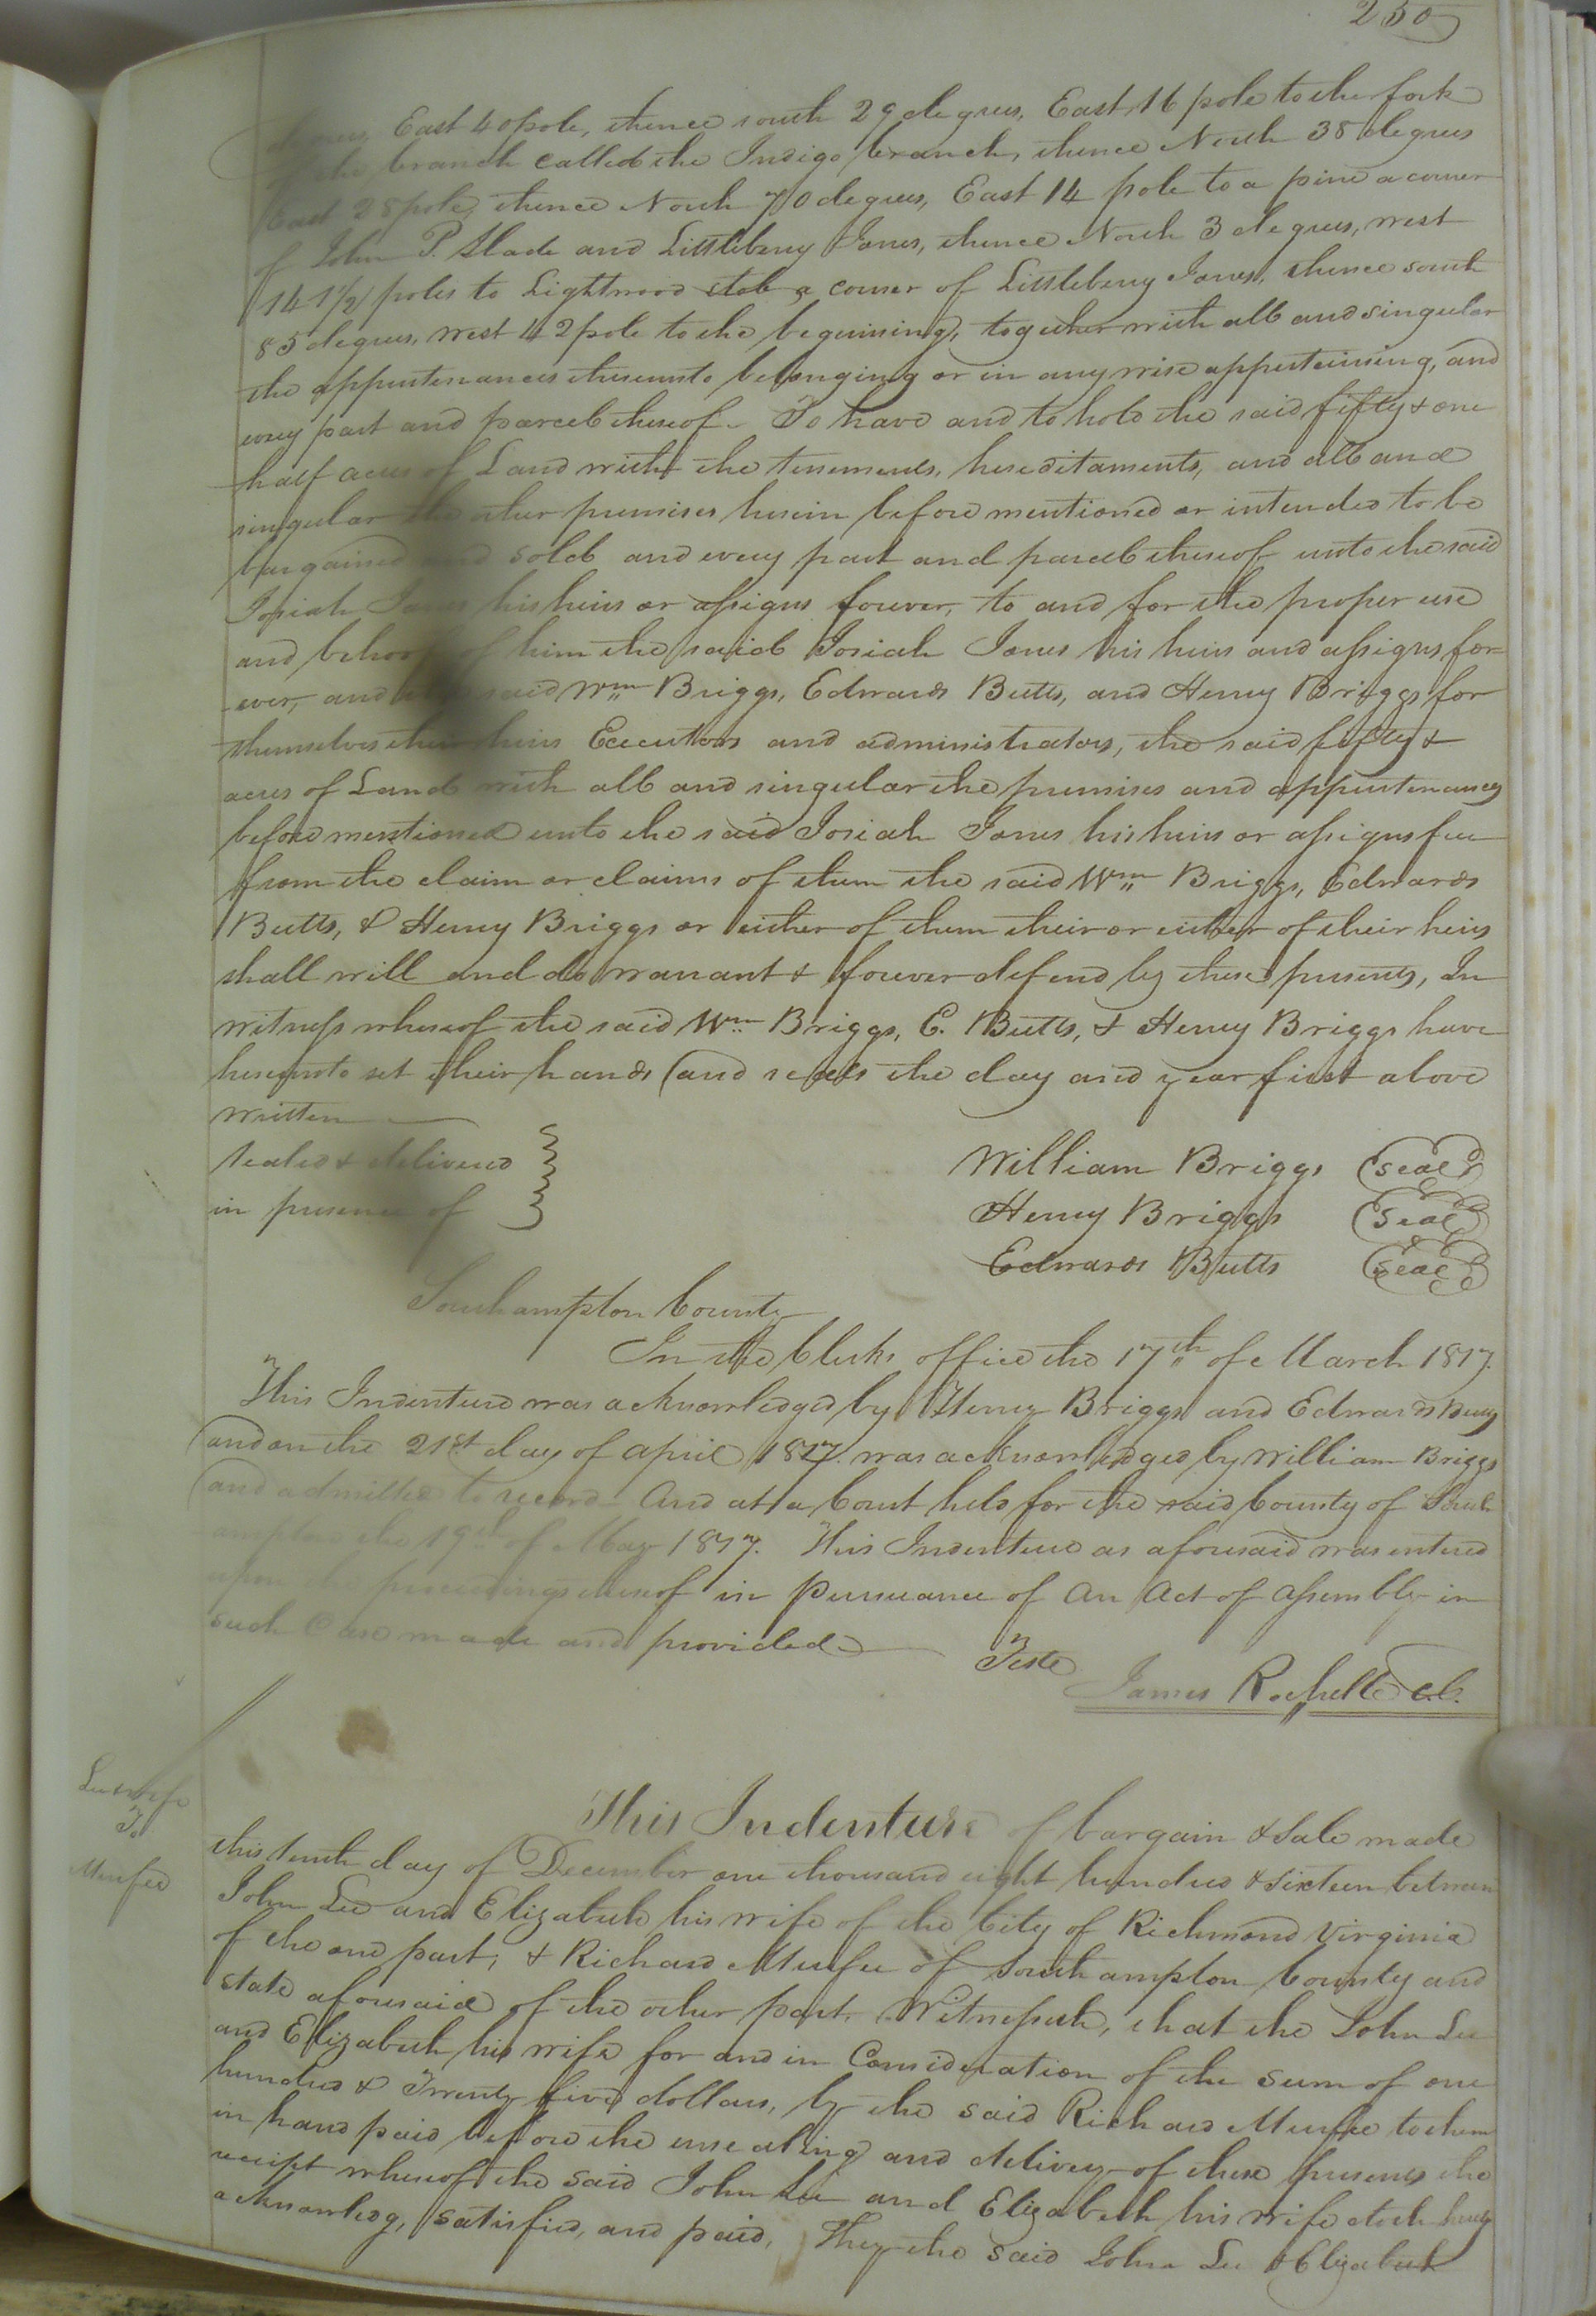 250
East 40 pole, thence south 29 degrees, East 16 pole to the fork
the branch called the Indigo branch, thence North 38 degrees
East 28 pole, thence North 70 degrees, East 14 pole to a pine a corner
of John P. Slade and Littlebery Jones, thence North 3 degrees, west
141 1/2 poles to Lightwood stob a corner of Littlebery Jones, thence south
85 degrees, west 42 pole to the beginning, together with all and singular
the appurtenances thereunto belonging or in any wise appurteining, and
every part and parcel thereof. To have and to hold the said fifty & one
half acres of Land with the tenements, hereditaments, and all and
singular the other premises herein before mentioned or intended to be
bargained and sold and every part and parcel thereof unto the said
Josiah Jones his heirs or assigns forever, to and for the proper use
and behoof of him the said Josiah Jones his heirs and assigns for=
ever, and the said Wm Briggs, Edwards Butts, and Henry Briggs for
themselves their heirs Executors and administrators, the said fifty &
acres of Land with all and singular the premises and appurtenances
before mentioned unto the said Josiah Jones his heirs or assigns free
from the claim or claims of them the said Wm Briggs, Edwards
Butts, & Henry Briggs or either of them their or either of their heirs
shall will and do warrant & forever defend by these presents, In
witness whereof the said Wm Briggs, E. Butts, & Henry Briggs have
hereunto set their hands and seals the day and year first above
written
Sealed & delivered
in presence of
William Briggs (seal)
Henry Briggs (seal)
Edwards Butts (seal)
Southampton County
In the Clerks office the 17th of March 1817.
This Indenture was acknowledged by Henry Briggs and Edwards Butts
and on the 21st day of April 1817. was acknowledged by William Briggs
and admitted to record And at a Court held for the said County of South
ampton the 19th of May 1817. This Indenture as aforesaid was entered
upon the proceedings thereof in pursuance of An Act of Assembly in
such Case made and provided
Teste
James Rochelle C.C.
Lee & wife
To
Murfee
This Indenture of bargain & Sale made
this tenth day of December one thousand eight hundred & sixteen between
John Lee and Elizabeth his wife of the City of Richmond Virginia
of the one part, & Richard Murfee of Southampton County and
state aforesaid of the other part. Witnesseth, that the John Lee
and Elizabeth his wife for and in Consideration of the sum of one
hundred & Twenty five dollars, by the said Richard Murfee to them
in hand paid before the ensealing and delivery of these presents the
receipt whereof the said John Lee and Elizabeth his wife doth hereby
acknowledg, satisfied, and paid, They the said John Lee & Elizabeth